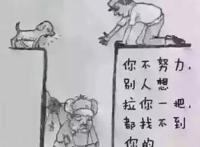 你不努力,
别人想
拉你一把,
都找不到
你的